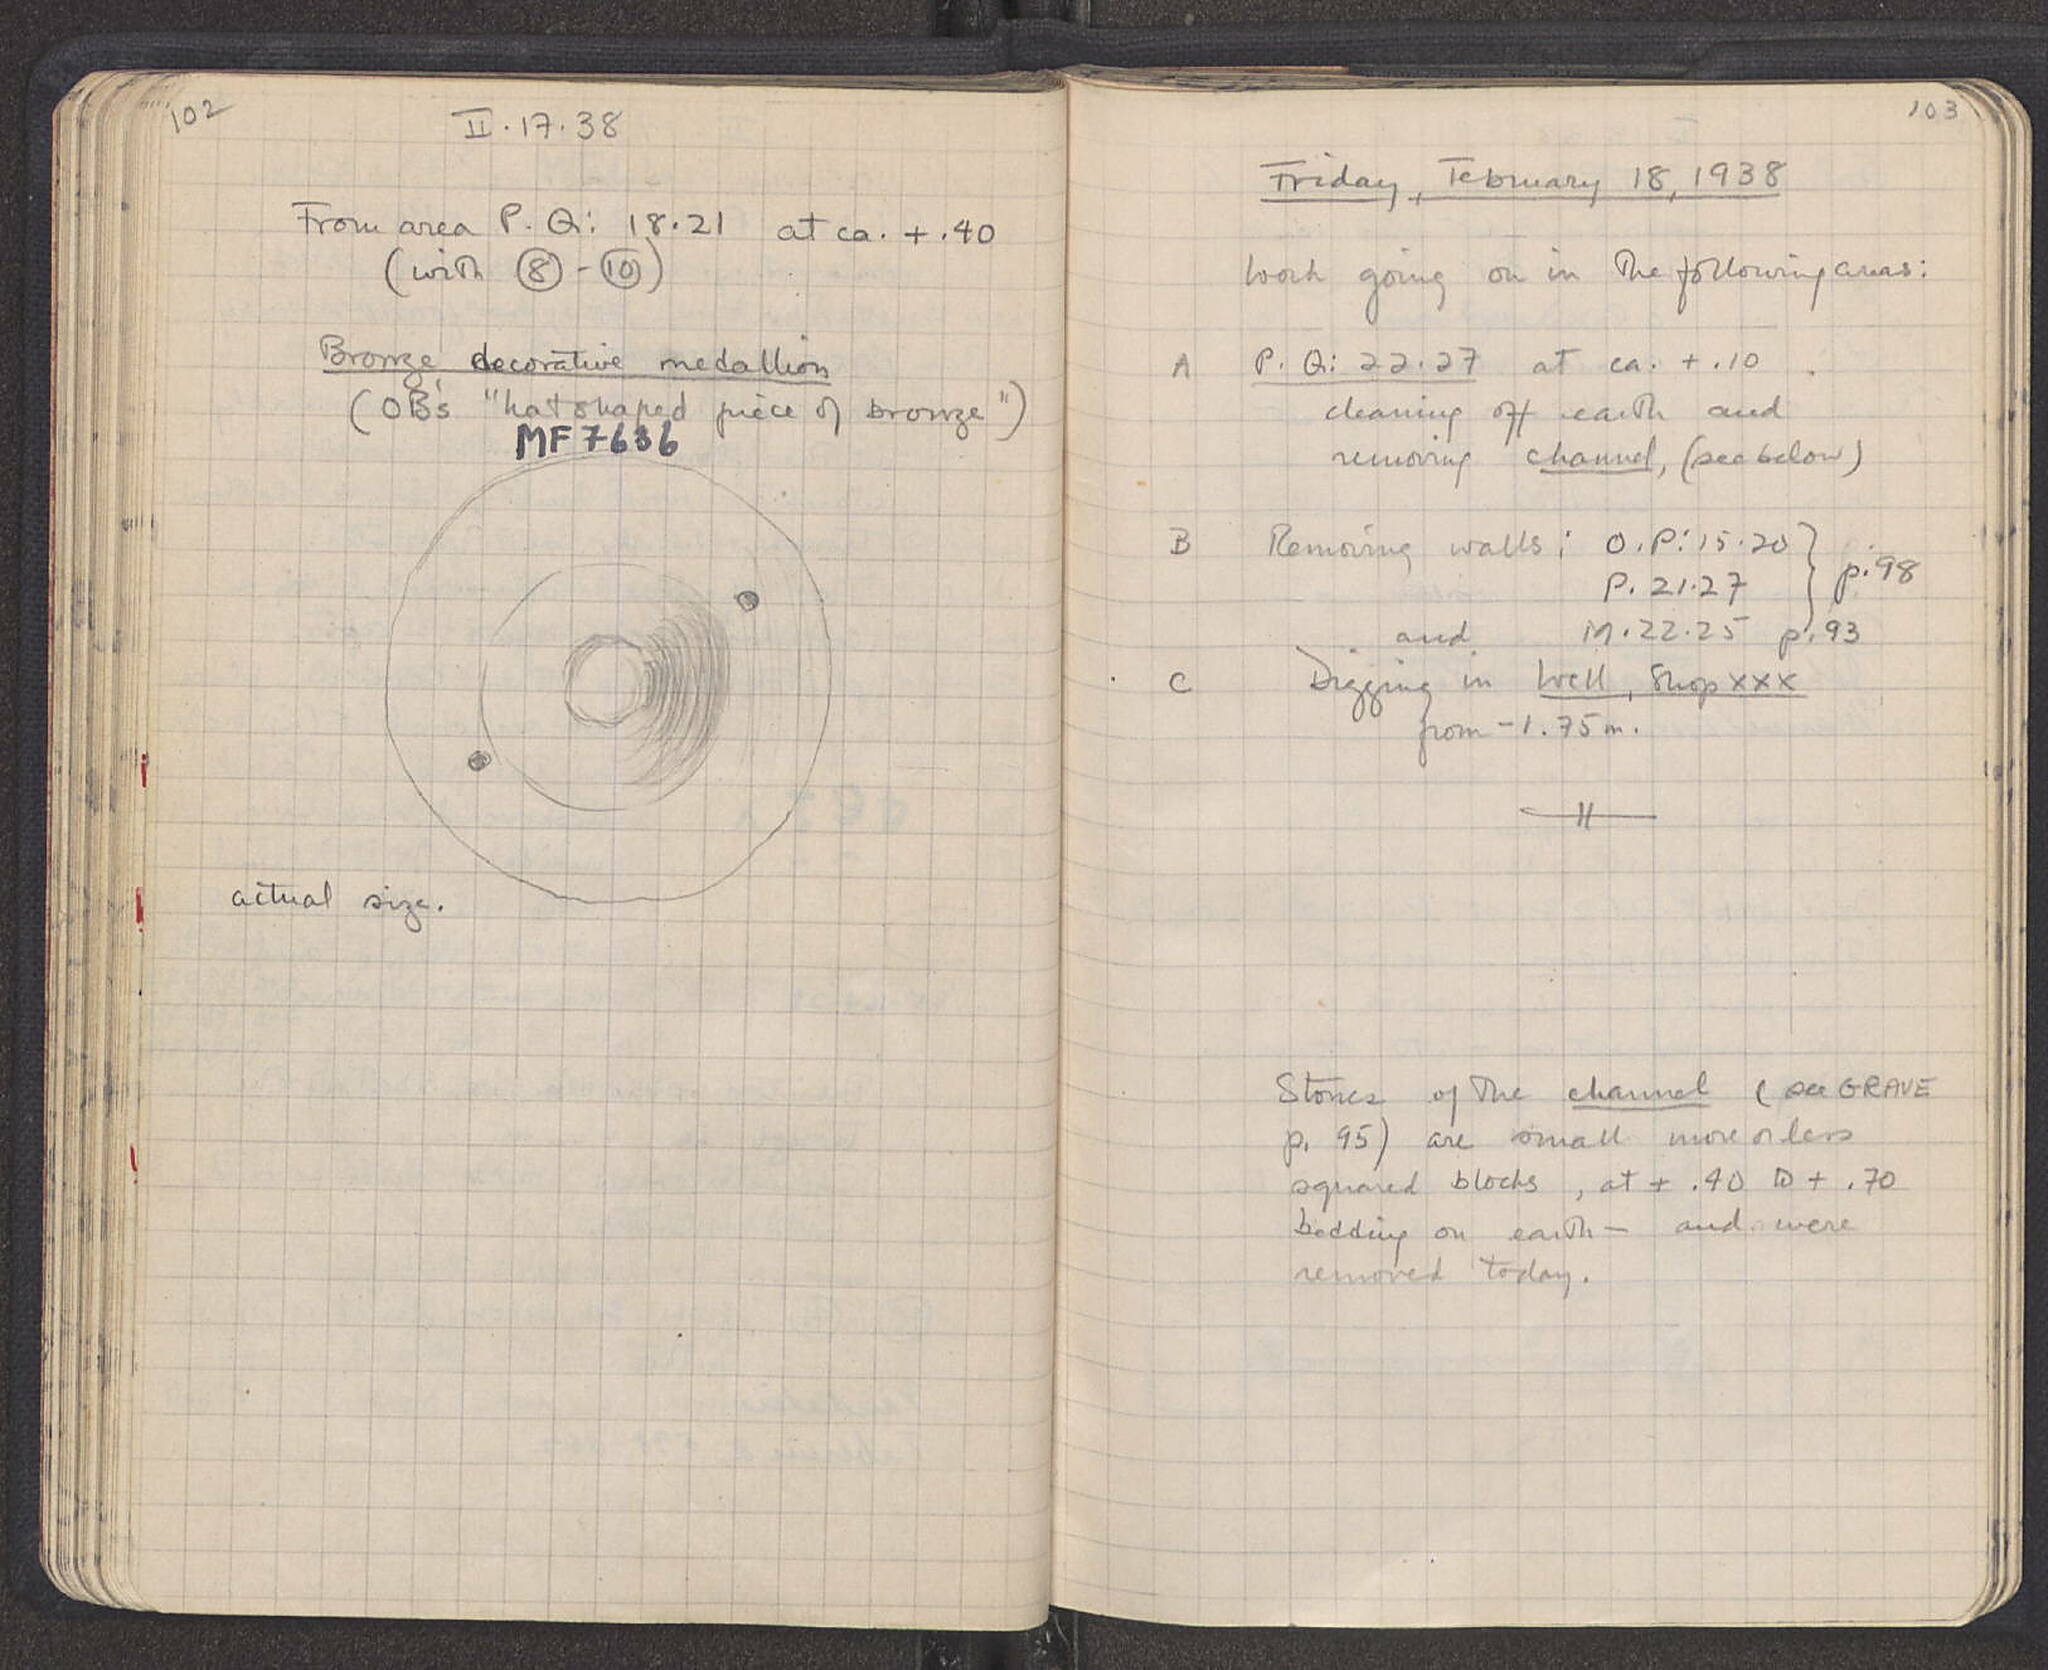 102
II.17.38
From area P. Q: 18.21 at ca. +.40
(with ⑧-⑩)
Bronze decorative medallion
(OB's "hat shaped piece of bronze")
MF 7636
actual size.
103
Friday, February 18, 1938
Work going on in the following areas:
A P. Q: 22.27 at ca. +.10
cleaning off earth and
removing channel, (see below)
B Removing walls: O.P: 15.20
P. 21.27 } p. 98
and M. 22.25 p. 93
C Digging in Well, Shop XXX
from -1.75 m.
Stones of the channel (see GRAVE
p. 95) are small more or less
squared blocks, at +.40 to +.70
bedding on earth — and were
removed today.